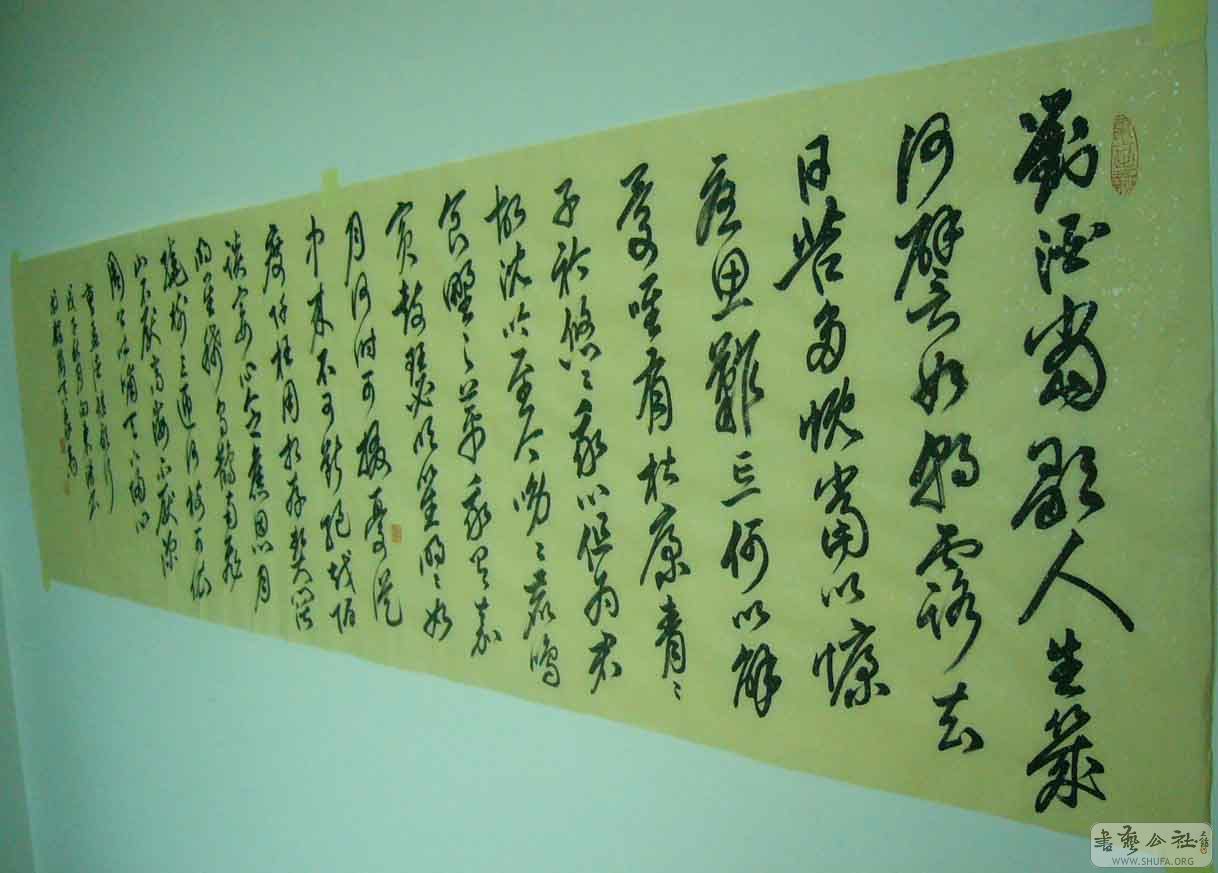 對酒當歌人生幾
何譬如朝露去
日苦多慨當以慷
憂思難忘何以解
憂唯有杜康青〻
子衿悠〻我心但為君
故沈吟至今呦〻鹿鳴
食野之苹我有嘉
賓鼓瑟吹笙明〻如
月何時可掇憂從
中來不可斷絕越陌
度阡枉用相存契闊
談宴心念舊恩月
明星稀烏鵲南飛
繞樹三匝何枝可依
山不厭高海不厭深
周公吐哺天下歸心
曹孟德短歌行
書藝公社
WWW.SHUFA.ORG